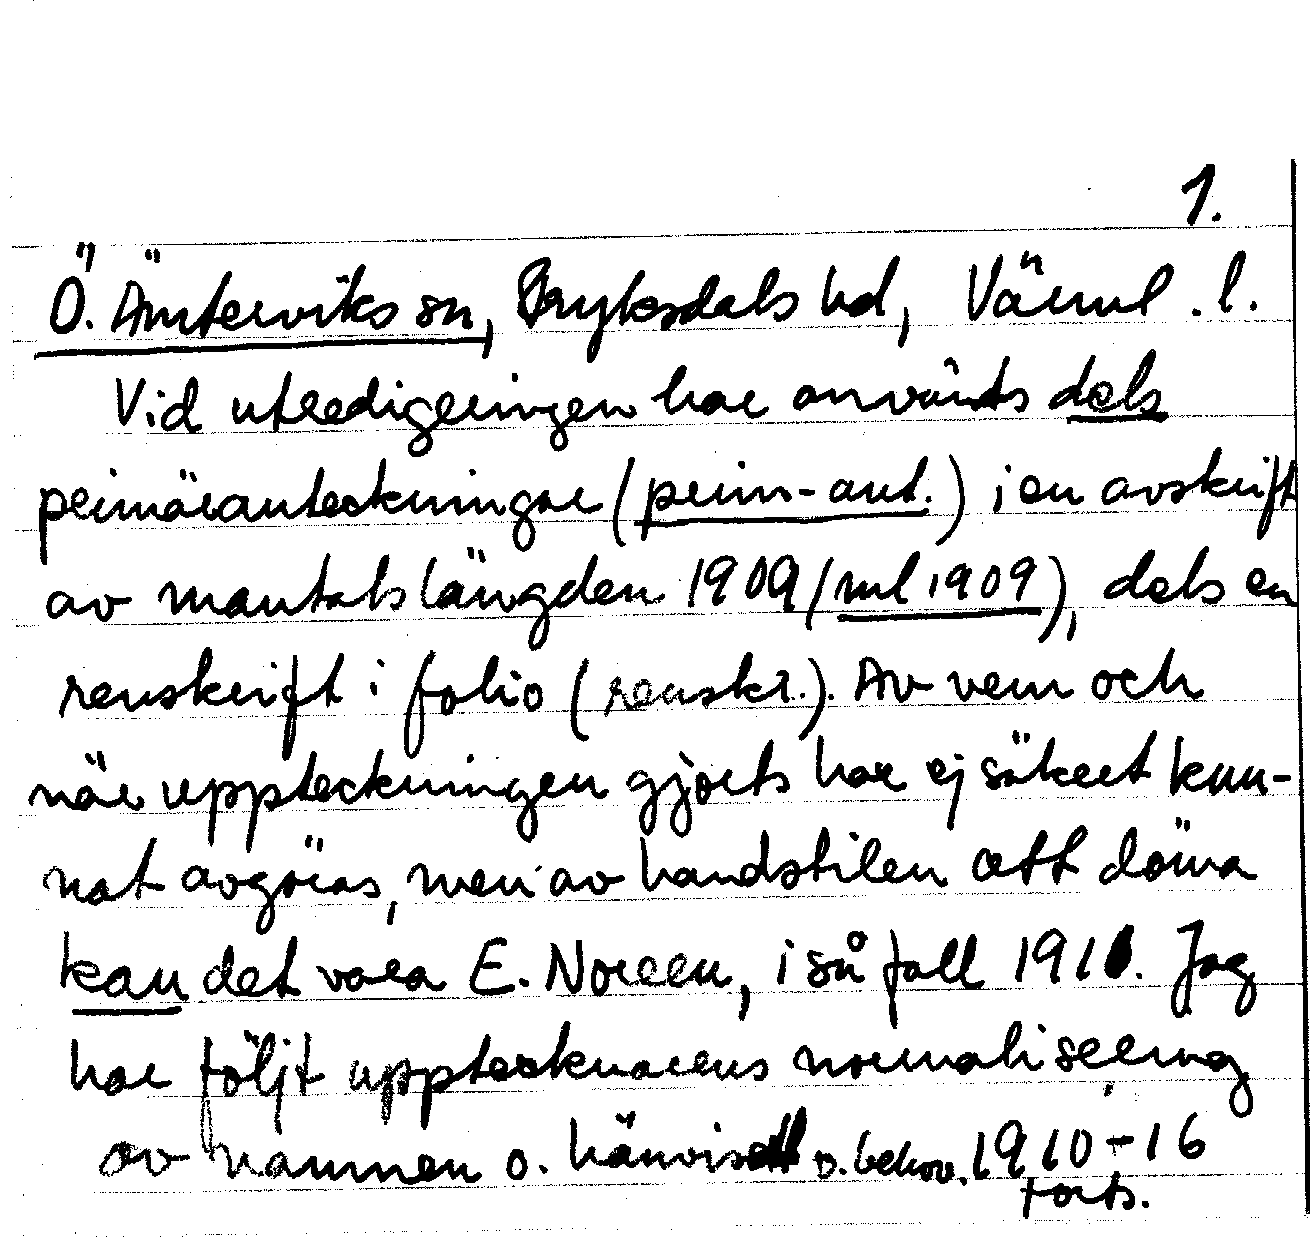 1.
Ö. Ämterviks sn, Fryksdals hd, Värml. l.
Vid utredigeringen har använts dels
primäranteckningar (prim-ant.) i en avskrift
av mantalslängden 1909 (ml 1909), dels en
renskrift i folio (renskr.). Av vem och
när uppteckningen gjorts har ej säkert kun-
nat avgöras, men av handstilen att döma
kan det vara E. Noreen, i så fall 191. Jag
har följt upptecknarens normalisering
av namnen o. hänvisat o. behov. 1910-16
forts.